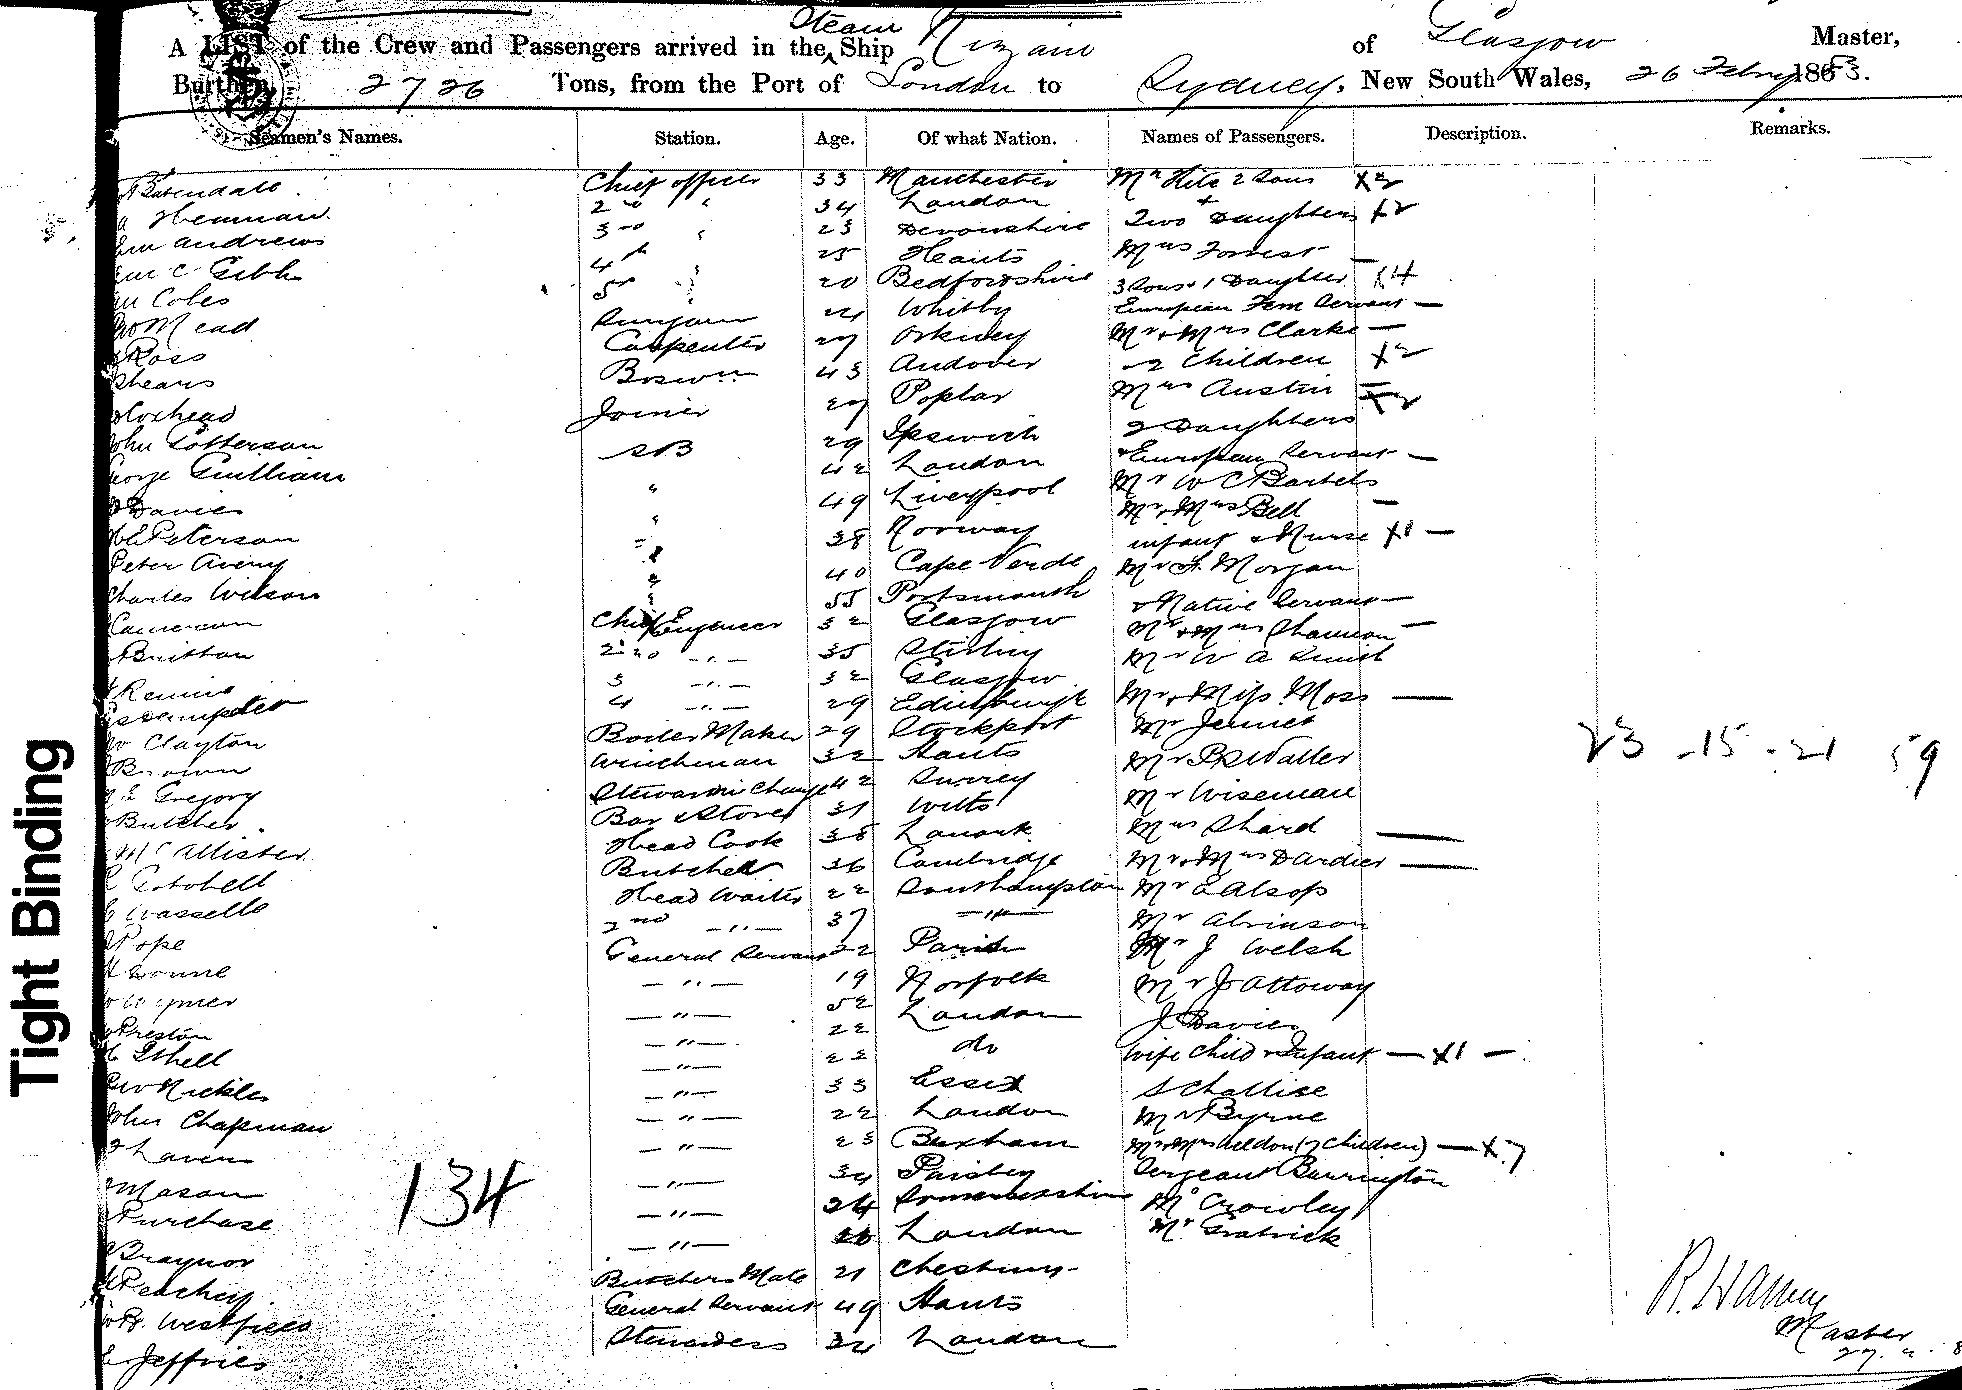 A LIST of the Crew and Passengers arrived in the Steam Ship Nizam of Glasgow Master,
Burthen, 2726 Tons, from the Port of London to Sydney, New South Wales, 26 Febry 1883.
Seamen's Names. Station. Age. Of what Nation. Names of Passengers. Description. Remarks.
Chief officer 33 Manchester Mr Hite 2 Sons x2
Henman 2nd " 34 London + Two Daughters x2
Andrews 3rd " 23 Devonshire Mrs Forrest —
C Gibb 4th 25 Hants 3 Sons + 1 Daughter x4
Coles 5th " 20 Bedfordshire European Fem Servant —
Mead 24 Whitby Mr & Mrs Clarke —
Ross Carpenter 27 Orkney 2 Children x2
Shears Bosun 43 Andover Mrs Austin —
Joiner 27 Poplar 2 Daughters x2
John Lotterson AB 29 Ipswich European Servant —
George Gulliam " 42 London Mr W C Bartels
Davies " 49 Liverpool Mr & Mrs Bell —
Peterson " 38 Norway infant & Nurse x1 —
Peter Avery " 40 Cape Verde Mr F. Morgan
Charles Wilson " 55 Portsmouth & Native Servant —
Cameron Chief Engineer 32 Glasgow Mr & Mrs Shannon —
Britton 2nd —"— 35 Stirling Mr W A Smith
Rennie 3 —"— 32 Glasgow
4 —"— 29 Edinburgh Mr & Miss Moss —
Clayton Boiler Maker 29 Stockport Mr Jenner
Brown Winchman 32 Hants Mr Waller
Gregory Steward in Charge 42 Surrey Mr Wiseman
Butcher Bar & Stores 31 Wilts Mrs Shard —
McAllister Head Cook 38 Lanark Mr & Mrs Dardier —
Gotobell Butcher 36 Cambridge Mr E Alsop
Wassell Head Waiter 22 Southampton Mr Abrinson
Pope 2nd —"— 37 —"— Mr J Welsh
General Servant 22 Paris Mr J Attoway
—"— 19 Norfolk J Davies
Preston —"— 52 London wife child & Infant — x1 —
Ethell —"— 22 do S Challise
Nickles —"— 22 Mr Byrne
John Chapman —"— 33 Essex Mr & Mrs Weldon (7 Children) — x7
Laven —"— 22 London Sergeant Barrington
Mason —"— 23 Brixham Mr Crowley
Purchase —"— 34 Paisley Mr Gratrick
Braynor —"— 24 Somersetshire
Peachey —"— 26 London
Westfield Butchers Mate 21
Jeffries General Servant 49 Hants
Stewardess 34 London
23 - 15 - 21 59
134
Master
Tight Binding